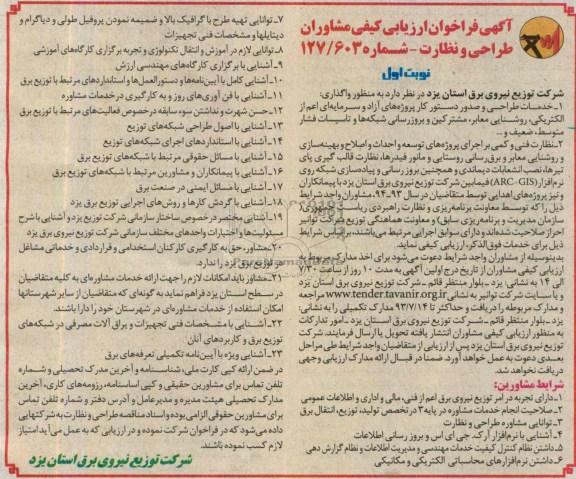 آگهی فراخوان ارزیابی کیفی مشاوران
طراحی و نظارت - شماره ۱۲۷/۶۰۳
نوبت اول
شرکت توزیع نیروی برق استان یزد در نظر دارد به منظور واگذاری:
۱- خدمات طراحی و صدور دستور کار پروژه‌های آزاد و سرمایه‌ای اعم از
الکتریکی، روشنایی معابر، مشترکین و بروزرسانی شبکه‌ها و تاسیسات فشار
متوسط، ضعیف و ...
۲- نظارت فنی و کمی بر اجرای پروژه‌های توسعه و احداث و اصلاح و بهینه‌سازی
و روشنایی معابر و برق‌رسانی روستایی و مانور فیدرها، نظارت قالب گیری پای
تیرها، نصب انشعابات دیماندی و همچنین بروز رسانی و پیاده‌سازی شبکه روی
نرم‌افزار (ARC-GIS) فیمابین شرکت توزیع نیروی برق استان یزد با پیمانکاران
و نیز پروژه‌های اهدایی توسط متقاضیان در سال ۹۳-۹۴، مشاوران واجد شرایط
ذیل را که توسط معاونت برنامه‌ریزی و نظارت راهبردی ریاست جمهوری(
سازمان مدیریت و برنامه‌ریزی سابق) و معاونت هماهنگی توزیع شرکت توانیر
احراز صلاحیت شده‌اند و دارای سوابق اجرایی مرتبط می‌باشند، بر اساس شرایط
ذیل برای خدمات فوق‌الذکر، ارزیابی کیفی نماید.
بدینوسیله از مشاوران واجد شرایط دعوت می‌شود برای اخذ مدارک مربوط به
ارزیابی کیفی مشاوران از تاریخ درج اولین آگهی به مدت ۱۰ روز از ساعت ۷/۳۰
الی ۱۴ به نشانی: یزد - بلوار منتظر قائم - شرکت توزیع نیروی برق استان یزد
و یا سایت شرکت توانیر به نشانی www.tender.tavanir.org.ir مراجعه
و مدارک مربوطه را دریافت و حداکثر تا ۹۳/۷/۱۴ مدارک تکمیلی را به نشانی:
یزد - بلوار منتظر قائم - شرکت توزیع نیروی برق استان یزد - امور تدارکات
به منظور ارزیابی کیفی مشاوران انتشار یافته تحویل یا ارسال فرمایند. شرکت
توزیع نیروی برق استان یزد پس از ارزیابی از متقاضیان واجد شرایط طی مراحل
بعدی دعوت به عمل خواهد آورد. ضمنا در قبال ارائه مدارک ارزیابی وجهی
دریافت نخواهد شد.
شرایط مشاورین:
۱- دارای تجربه در امر توزیع نیروی برق اعم از فنی، مالی و اداری و اطلاعات عمومی
۲- صلاحیت انجام خدمات مشاوره در پایه ۳ در تخصص تولید، توزیع، انتقال برق
۳- توانایی مشاوره طراحی و نظارت
۴- آشنایی با نرم‌افزار آرک. جی آی اس و بروز رسانی اطلاعات
۵- داشتن نظام کنترل کیفیت خدمات مهندسی و مدیریت اطلاعات و نظام گزارش دهی
۶- داشتن نرم‌افزارهای محاسباتی الکتریکی و مکانیکی
۷- توانایی تهیه طرح با گرافیک بالا و ضمیمه نمودن پروفیل طولی و دیاگرام و
دیتایلها و مشخصات فنی تجهیزات
۸- توانایی لازم در آموزش و انتقال تکنولوژی و تجربه برگزاری کارگاه‌های آموزشی
۹- آشنایی با برگزاری کارگاه‌های مهندسی ارزش
۱۰- آشنایی کامل با آیین‌نامه‌ها و دستورالعمل‌ها و استانداردهای مرتبط با توزیع برق
۱۱- آشنایی با فن آوری‌های روز و به کارگیری در خدمات مشاوره
۱۲- حسن شهرت و نداشتن سوء سابقه در خصوص فعالیت‌های مرتبط با توزیع برق
۱۳- آشنایی با اصول طراحی شبکه‌های توزیع
۱۴- آشنایی با استانداردهای اجرای شبکه‌های توزیع
۱۵- آشنایی با مسائل حقوقی مرتبط با شبکه‌های توزیع برق
۱۶- آشنایی با پیمانکاران و مشاورین مرتبط با شبکه‌های توزیع برق
۱۷- آشنایی با مسائل ایمنی در صنعت برق
۱۸- آشنایی با گردش کارها و روش‌های اجرایی توزیع یزد
۱۹- آشنایی مختصر در خصوص ساختار سازمانی شرکت توزیع یزد و آشنایی با شرح
مسئولیت‌ها و اختیارات واحدهای مختلف سازمانی شرکت توزیع نیروی برق یزد
۲۰- مشاور، حق به کارگیری کارکنان استخدامی و قراردادی و خدماتی مشاغل
در توزیع برق یزد را ندارد.
۲۱- مشاور باید امکانات لازم را جهت ارائه خدمات مشاوره‌ای به کلیه متقاضیان
در سطح استان یزد فراهم نماید به گونه‌ای که متقاضیان از سایر شهرستانها
امکان استفاده از خدمات مشاوره‌ای در شهرستان خود را دارا باشند.
۲۲- آشنایی با مشخصات فنی تجهیزات و یراق آلات مصرفی در شبکه‌های
توزیع برق و کاربردهای آنان
۲۳- آشنایی ویژه با آیین‌نامه تکمیلی تعرفه‌های برق
در ضمن ارائه کپی کارت ملی، شناسنامه و آخرین مدرک تحصیلی و شماره
تلفن تماس برای مشاورین حقیقی و کپی اساسنامه، رزومه‌های کاری، آخرین
مدارک تحصیلی هیئت مدیره و مدیرعامل و آدرس دفتر و شماره تلفن تماس
برای مشاورین حقوقی الزامی بوده و اسناد مناقصه طراحی و نظارت به شرکتهایی
داده می‌شود که در فراخوان شرکت نموده و در ارزیابی که به عمل می‌آید امتیاز
لازم کسب نموده باشند.
شرکت توزیع نیروی برق استان یزد